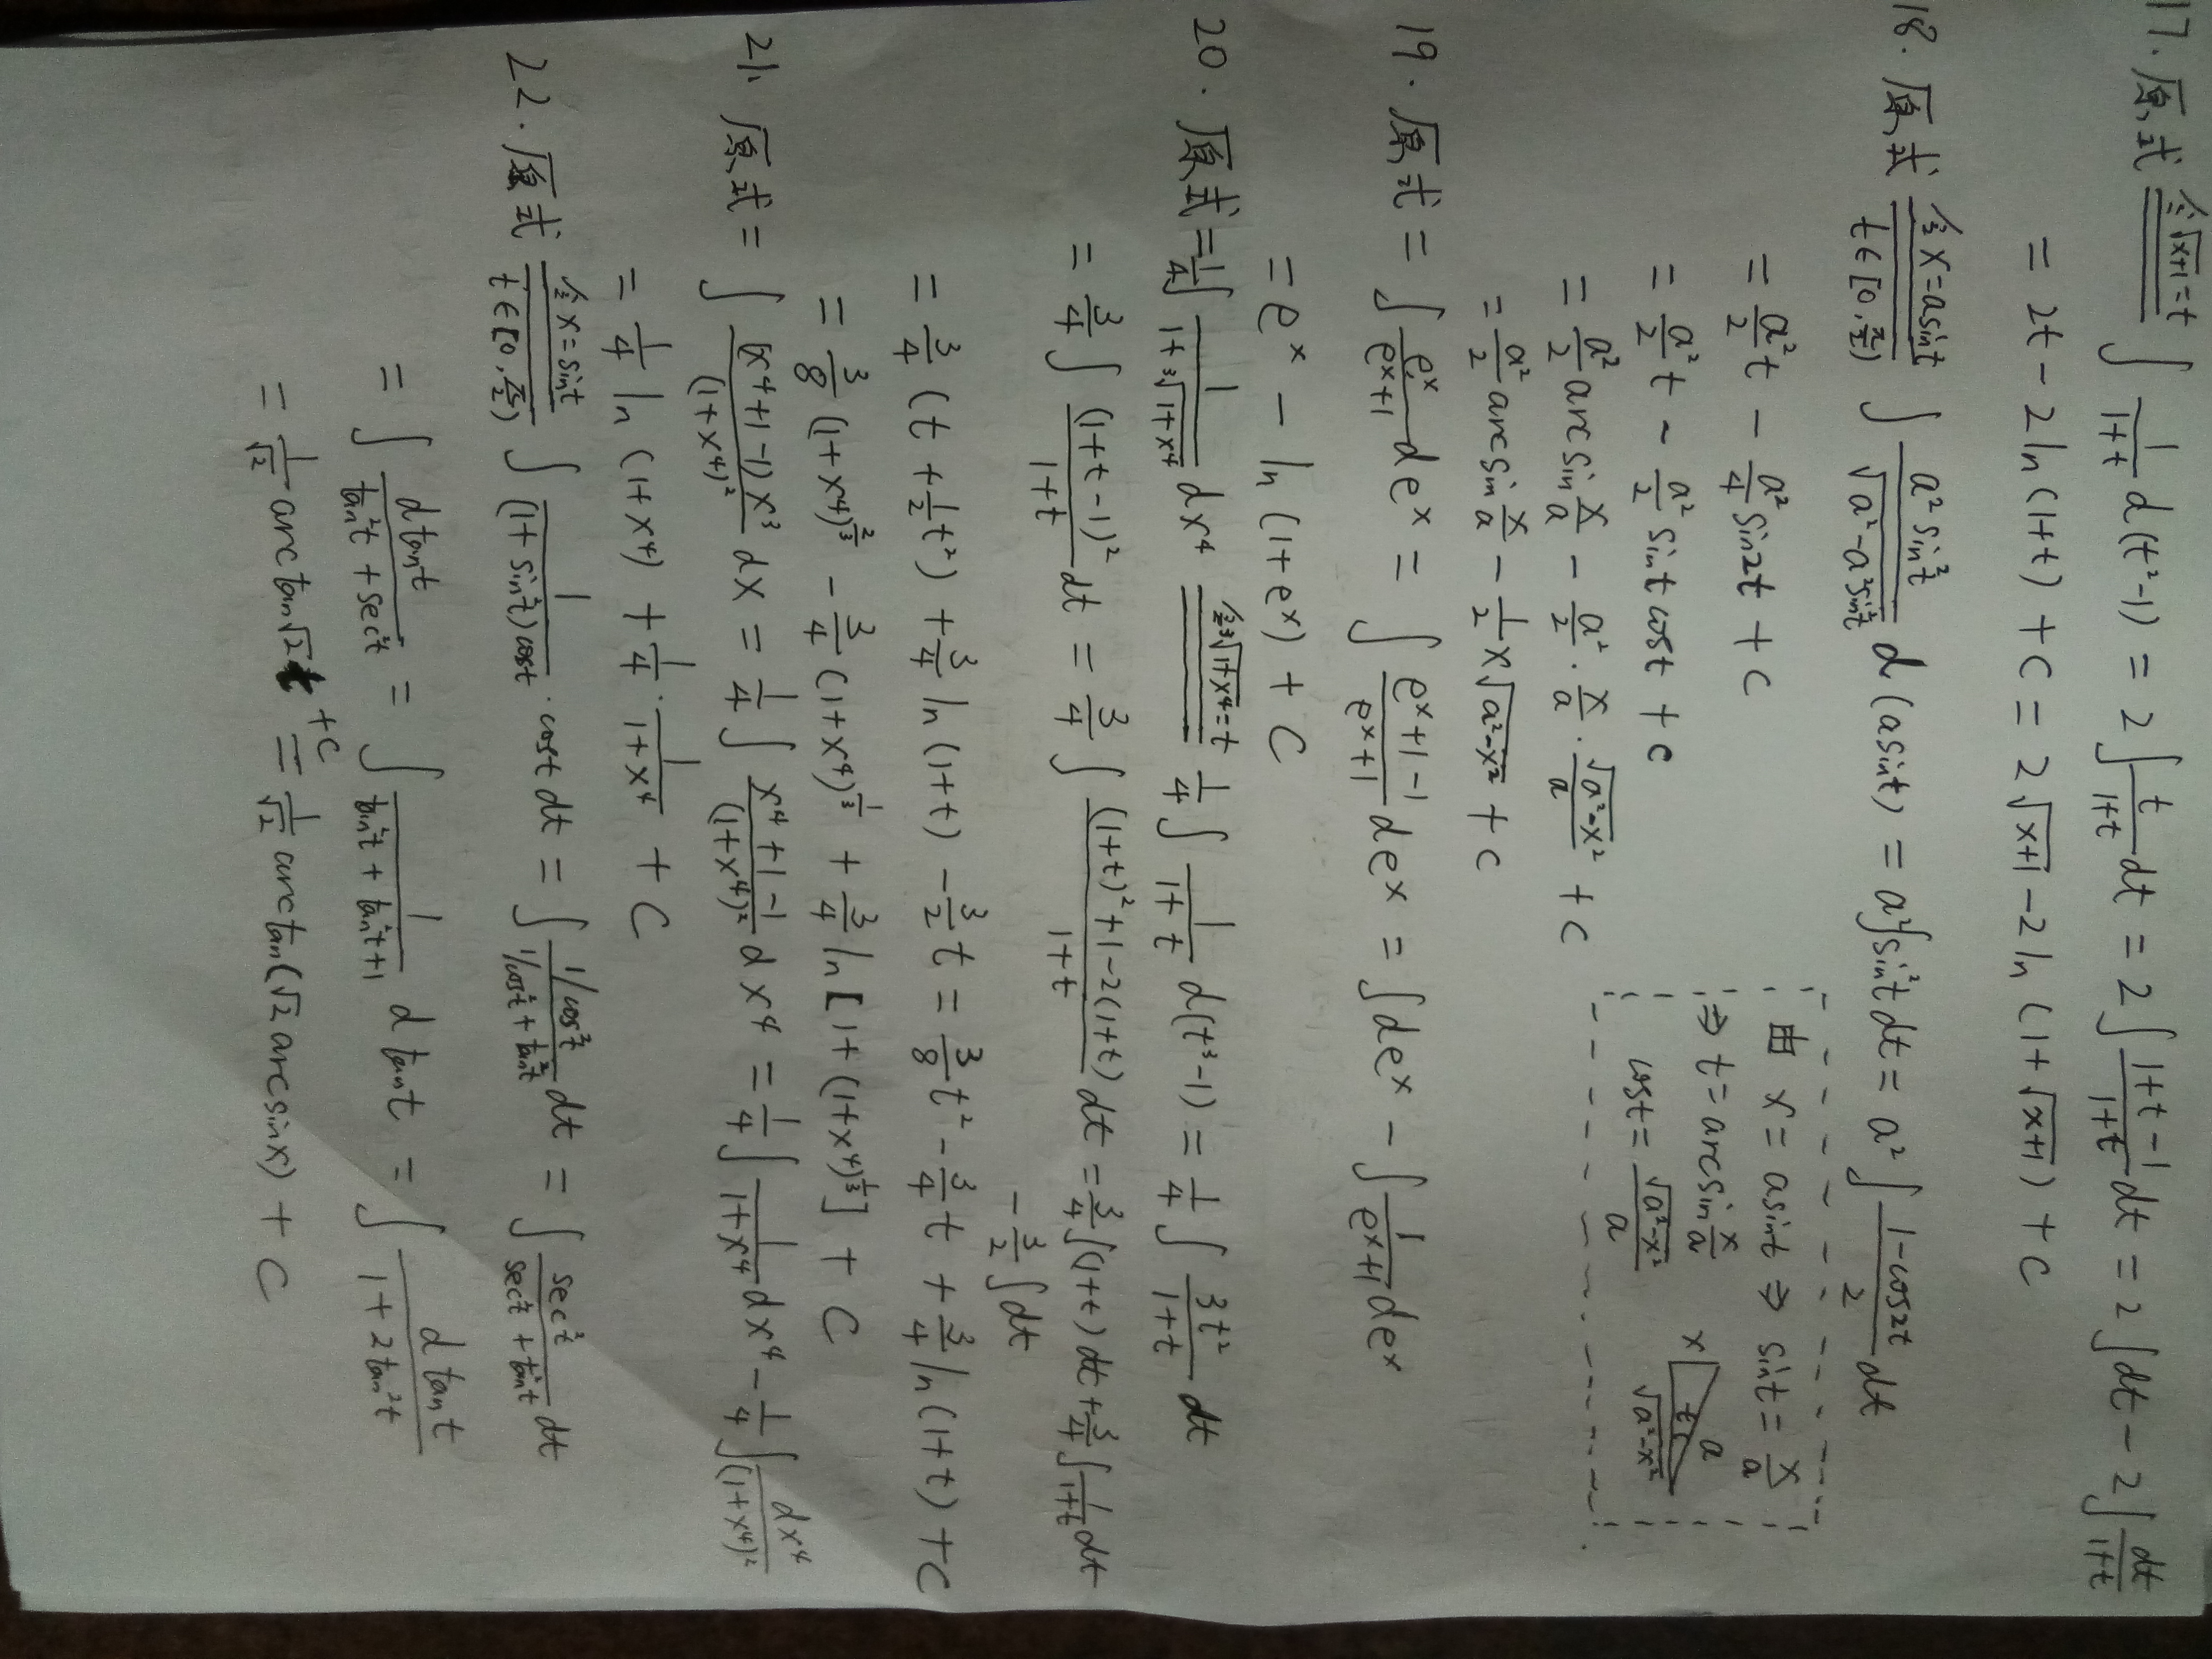 17. 原式 令√(x+1)=t ∫ 1/(1+t) d(t²-1) = 2∫ t/(1+t) dt = 2∫ (1+t-1)/(1+t) dt = 2∫dt - 2∫ dt/(1+t)
= 2t - 2ln(1+t) + C = 2√(x+1) - 2ln(1+√(x+1)) + C
18. 原式 令x=asint t∈[0,π/2) ∫ a²sin²t/√(a²-a²sin²t) d(asint) = a²∫sin²t dt = a²∫ (1-cos2t)/2 dt
= a²/2 t - a²/4 sin2t + C
= a²/2 t - a²/2 sint cost + C
= a²/2 arcsin x/a - a²/2 · x/a · √(a²-x²)/a + C
= a²/2 arcsin x/a - 1/2 x√(a²-x²) + C
由 x = asint ⇒ sint = x/a
⇒ t = arcsin x/a
cost = √(a²-x²)/a
x a t √(a²-x²)
19. 原式 = ∫ eˣ/(eˣ+1) deˣ = ∫ (eˣ+1-1)/(eˣ+1) deˣ = ∫deˣ - ∫ 1/(eˣ+1) deˣ
= eˣ - ln(1+eˣ) + C
20. 原式 = 1/4 ∫ 1/(1+³√(1+x⁴)) dx⁴ 令³√(1+x⁴)=t 1/4 ∫ 1/(1+t) d(t³-1) = 1/4 ∫ 3t²/(1+t) dt
= 3/4 ∫ (1+t-1)²/(1+t) dt = 3/4 ∫ ((1+t)²+1-2(1+t))/(1+t) dt = 3/4 ∫(1+t)dt + 3/4 ∫ 1/(1+t) dt
- 3/2 ∫dt
= 3/4 (t + 1/2 t²) + 3/4 ln(1+t) - 3/2 t = 3/8 t² - 3/4 t + 3/4 ln(1+t) + C
= 3/8 (1+x⁴)^(2/3) - 3/4 (1+x⁴)^(1/3) + 3/4 ln[1+(1+x⁴)^(1/3)] + C
21. 原式 = ∫ (x⁴+1-1)x³/(1+x⁴)² dx = 1/4 ∫ (x⁴+1-1)/(1+x⁴)² dx⁴ = 1/4 ∫ 1/(1+x⁴) dx⁴ - 1/4 ∫ dx⁴/(1+x⁴)²
= 1/4 ln(1+x⁴) + 1/4 · 1/(1+x⁴) + C
22. 原式 令x=sint t∈[0,π/2) ∫ 1/((1+sin²t)cost) · cost dt = ∫ (1/cos²t)/(1/cos²t + tan²t) dt = ∫ sec²t/(sec²t+tan²t) dt
= ∫ dtant/(tan²t+sec²t) = ∫ 1/(tan²t+tan²t+1) dtant = ∫ dtant/(1+2tan²t)
= 1/√2 arctan√2t +C = 1/√2 arctan(√2 arcsinx) + C